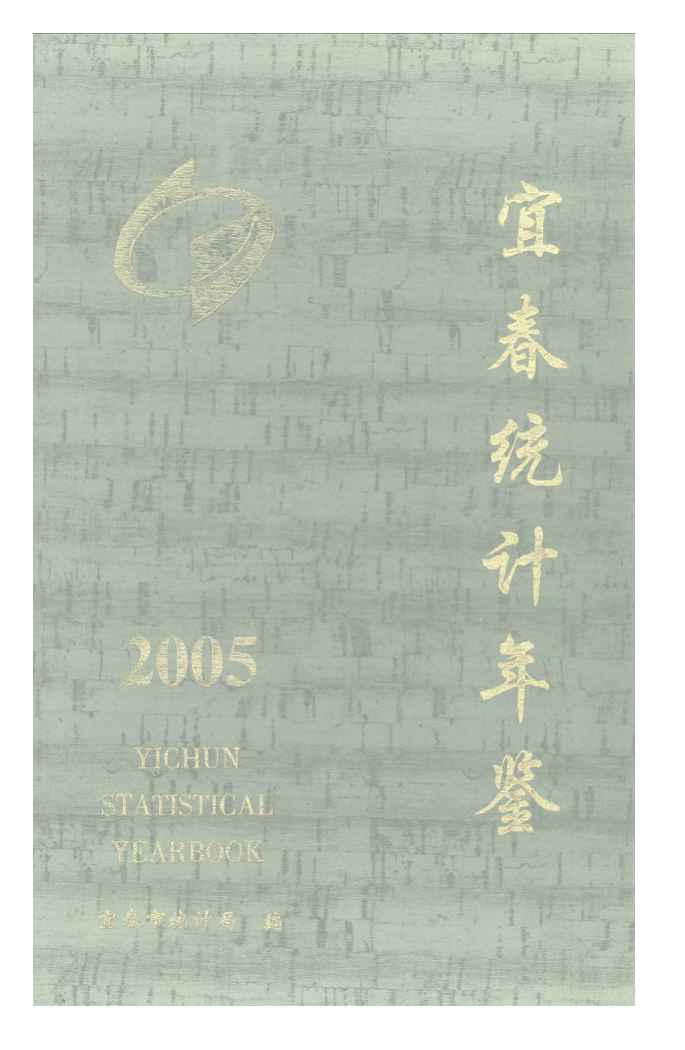 宜春统计年鉴
2005
YICHUN
STATISTICAL
YEARBOOK
宜春市统计局 编